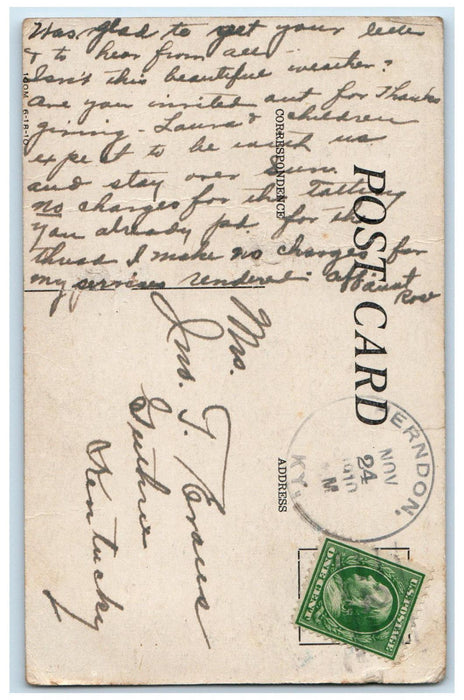 Was glad to get your letter
& to hear from all
Isn't this beautiful weather?
Are you invited out for Thanks
giving - Laura & children
expect to be with us
and stay over Sun.
no charges for the Tatting
You already pd. for the
thread I make no charges for
my services rendered. Aff Aunt
Rose
POST CARD
CORRESPONDENCE
ADDRESS
Mrs.
Jno. T.
Guthrie
Kentucky
HERNDON,
NOV
24
1910
M
KY.
U.S. POSTAGE
ONE CENT